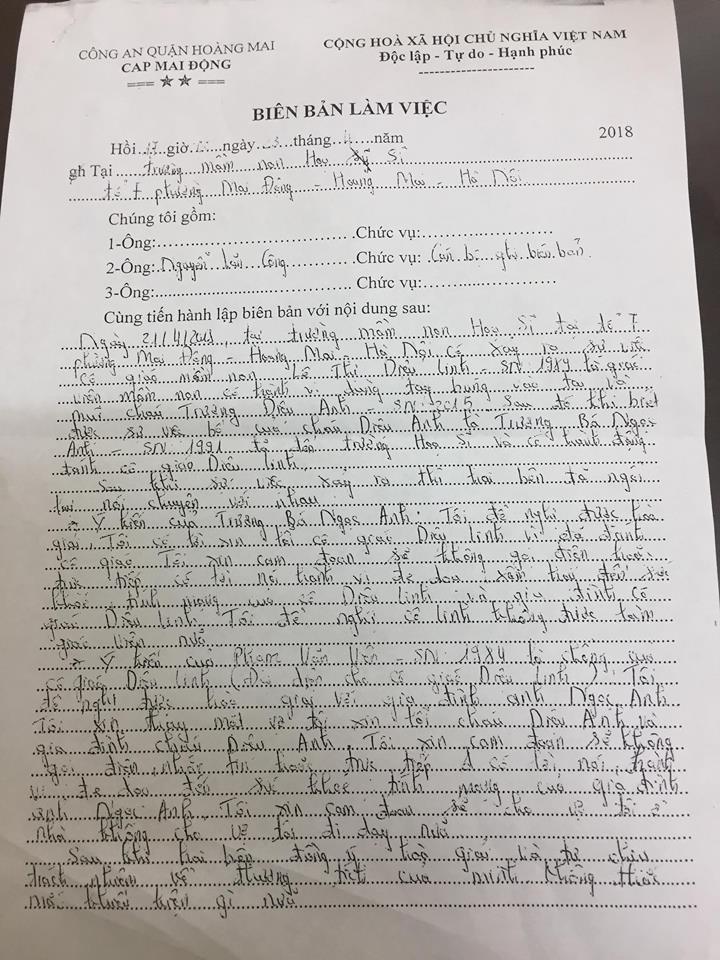 CÔNG AN QUẬN HOÀNG MAI
CỘNG HOÀ XÃ HỘI CHỦ NGHĨA VIỆT NAM
CAP MAI ĐỘNG
Độc lập - Tự do - Hạnh phúc
BIÊN BẢN LÀM VIỆC
Hồi 17 giờ ngày tháng 4 năm 2018
gh Tại trường mầm non Hoạ Sĩ
tổ 7 phường Mai Động - Hoàng Mai - Hà Nội
Chúng tôi gồm:
1-Ông: Chức vụ:
2-Ông: Nguyễn Công Chức vụ: Cán bộ ghi biên bản
3-Ông: Chức vụ:
Cùng tiến hành lập biên bản với nội dung sau:
Ngày 21/4/2018, tại trường mầm non Hoạ Sĩ tại tổ 7
phường Mai Động - Hoàng Mai - Hà Nội có xảy ra sự việc
cô giáo mầm non Lê Thị Diệu Linh - SN 1984 là giáo
viên mầm non có hành vi dùng tay vào tay và
mũi cháu Trương Diệu Anh - SN 2015 Sau đó khi biết
được sự việc bố của cháu Diệu Anh là Trương Bá Ngọc
Anh - SN 1991 đã đến trường Hoạ Sĩ và có hành động
đánh cô giáo Diệu Linh
Sau khi sự việc xảy ra thì hai bên đã ngồi
lại nói chuyện với nhau
* Ý kiến của Trương Bá Ngọc Anh: Tôi đề nghị được hoà
giải, Tôi có lời xin lỗi cô giáo Diệu Linh vì đã đánh
cô giáo Tôi xin cam đoan sẽ không gọi điện hoặc
trực tiếp có lời nói hành vi đe doạ xâm hại đến sức
khoẻ tính mạng của cô Diệu Linh và gia đình cô
giáo Diệu Linh. Tôi đề nghị cô Linh không được làm
giáo viên nữa
* Ý kiến của Phạm Văn - SN 1984 là chồng của
cô giáo Diệu Linh (Đại diện cho cô giáo Diệu Linh): Tôi
đề nghị được hoà giải với gia đình anh Ngọc Anh
Tôi xin thay mặt vợ tôi xin lỗi cháu Diệu Anh và
gia đình cháu Diệu Anh, Tôi xin cam đoan sẽ không
gọi điện, nhắn tin hoặc trực tiếp có lời nói, hành
vi đe doạ đến sức khoẻ tính mạng của gia đình
anh Ngọc Anh. Tôi xin cam đoan sẽ cho vợ tôi ở
nhà không cho vợ tôi đi dạy nữa
Sau khi hai bên đồng ý hoà giải và tự chịu
trách nhiệm về thương tích của mình không thắc
mắc khiếu kiện gì nữa